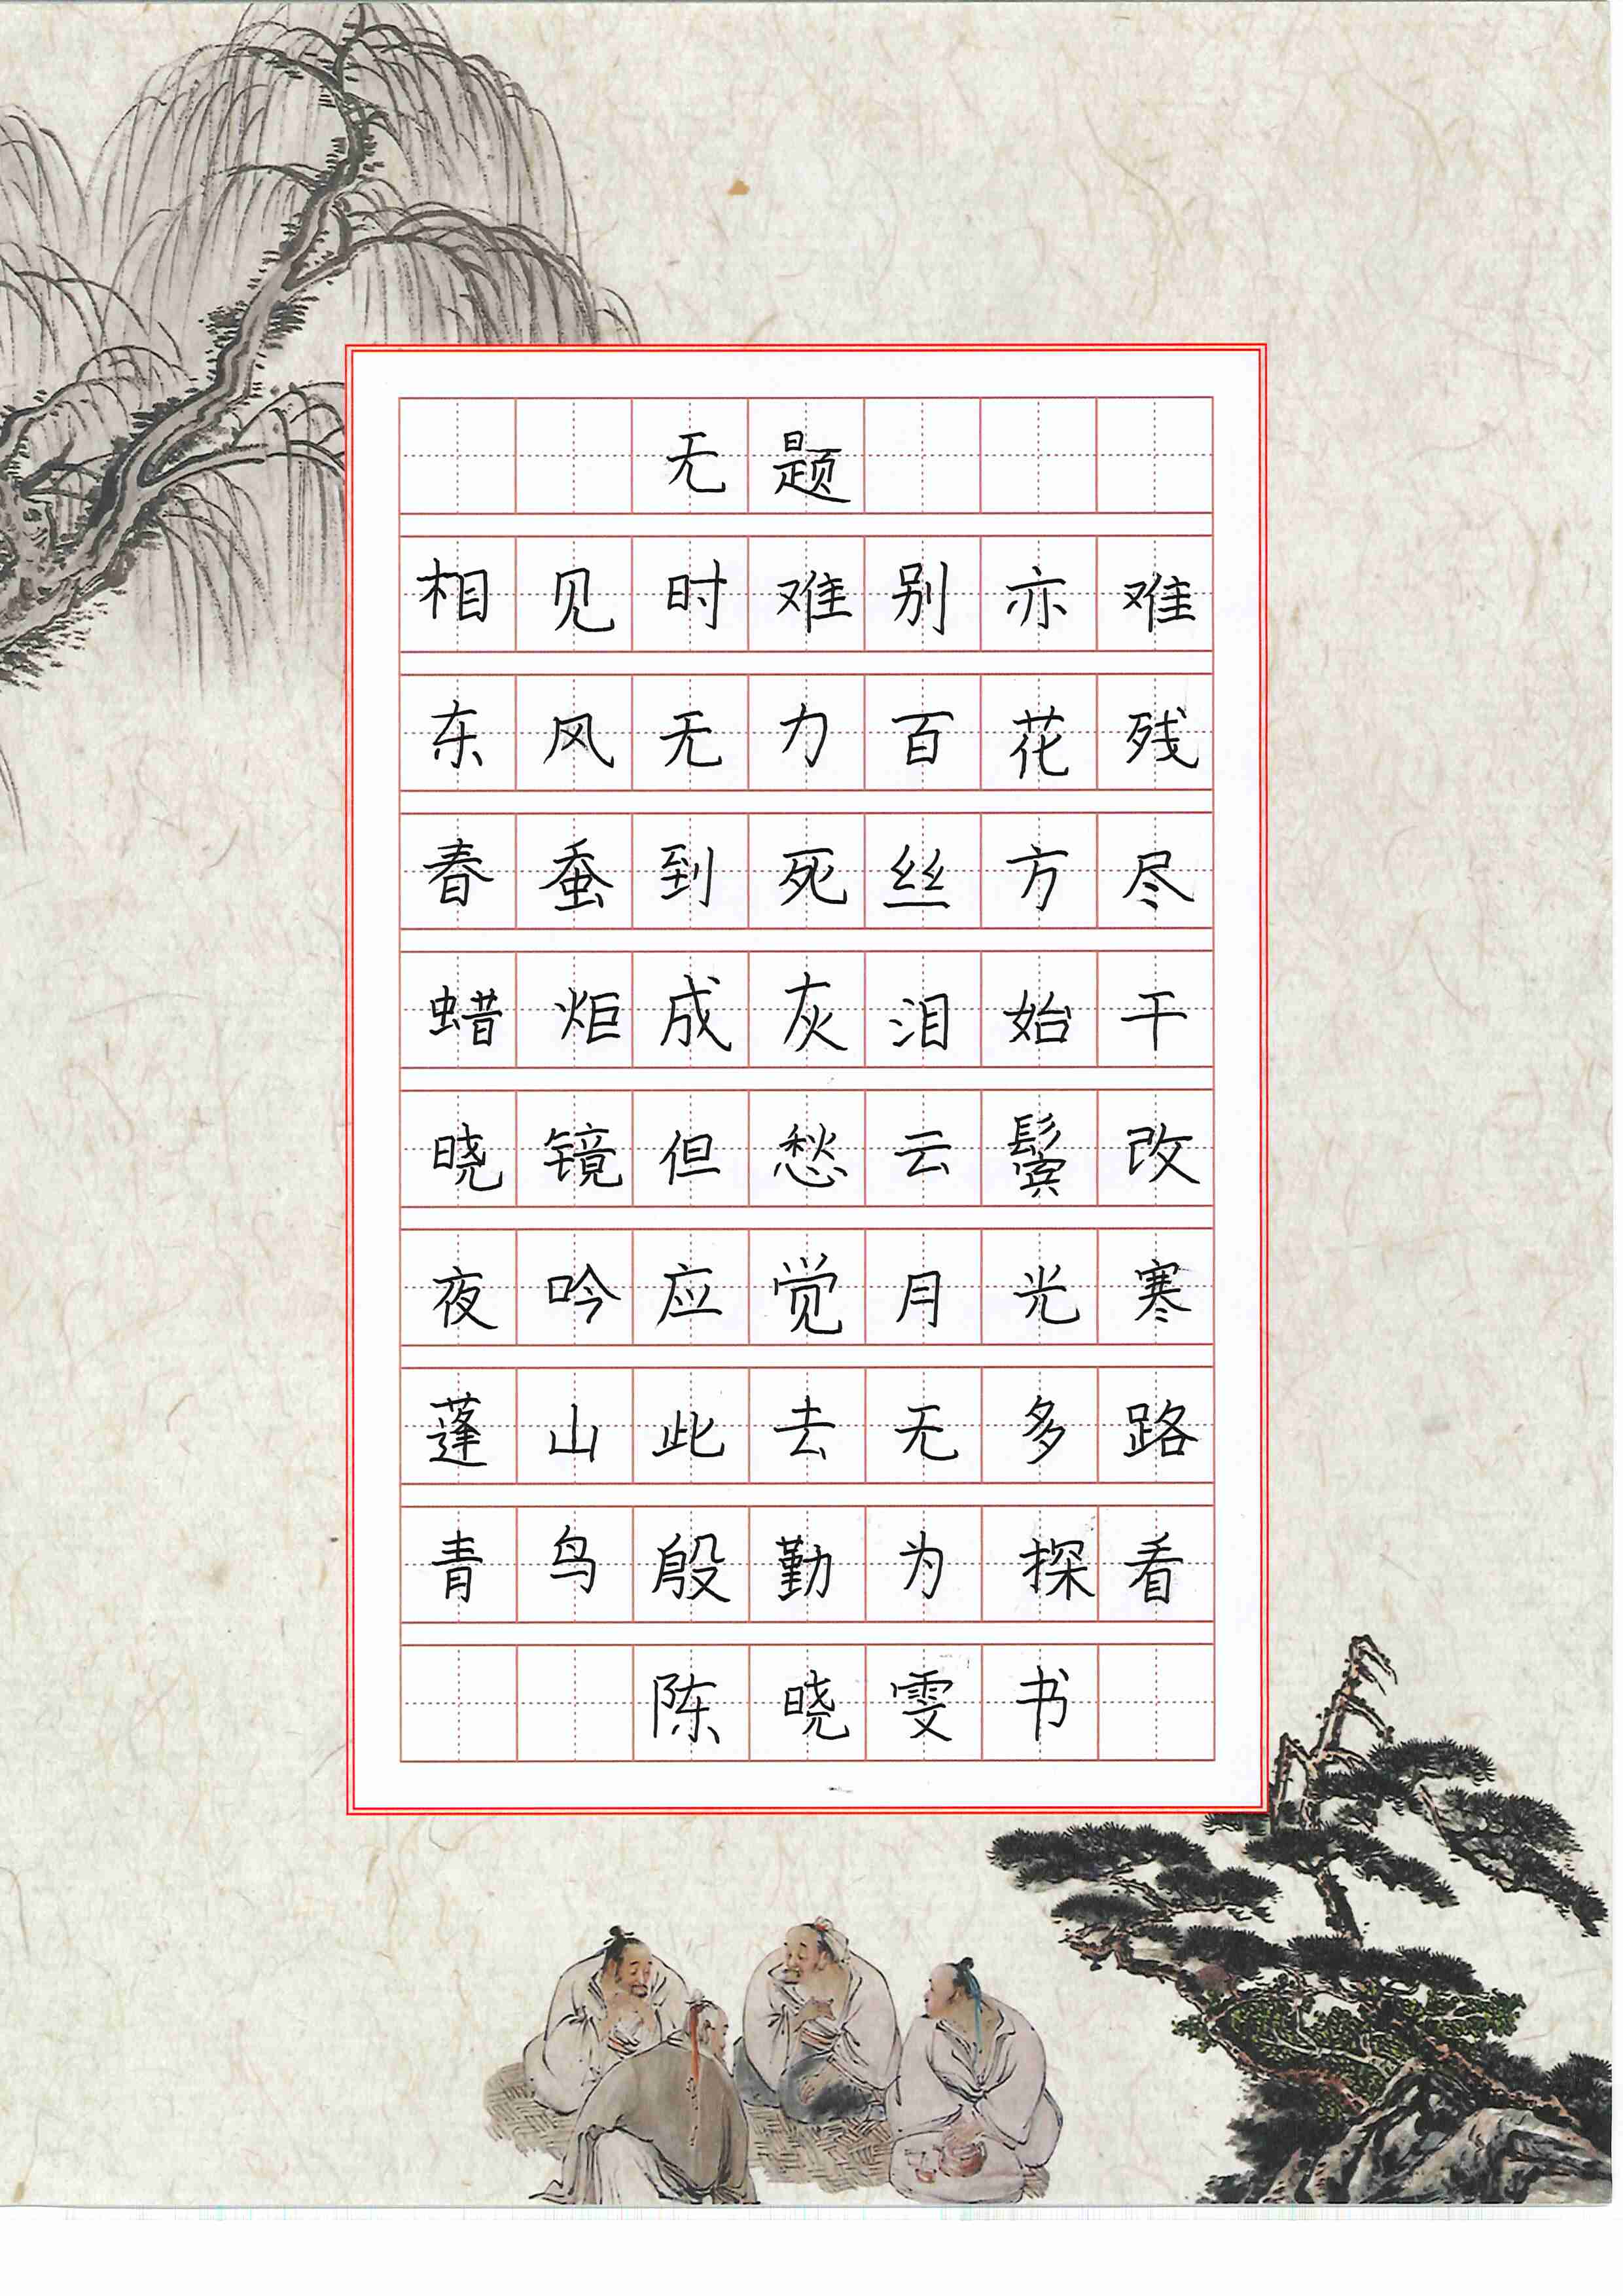 无题
相见时难别亦难
东风无力百花残
春蚕到死丝方尽
蜡炬成灰泪始干
晓镜但愁云鬓改
夜吟应觉月光寒
蓬山此去无多路
青鸟殷勤为探看
陈晓雯书